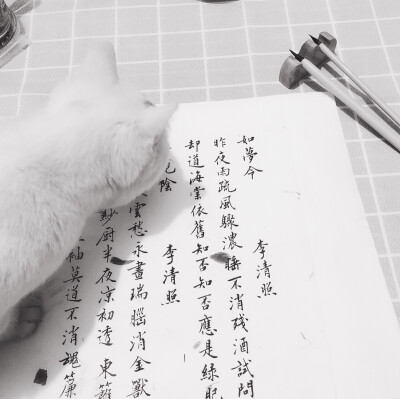 如夢令 李清照
昨夜雨疏風驟濃睡不消残酒試問
却道海棠依舊知否知否應是綠肥
陰 李清照
雲愁永晝瑞腦消金獸
紗厨半夜凉初透東籬
袖莫道不消魂簾